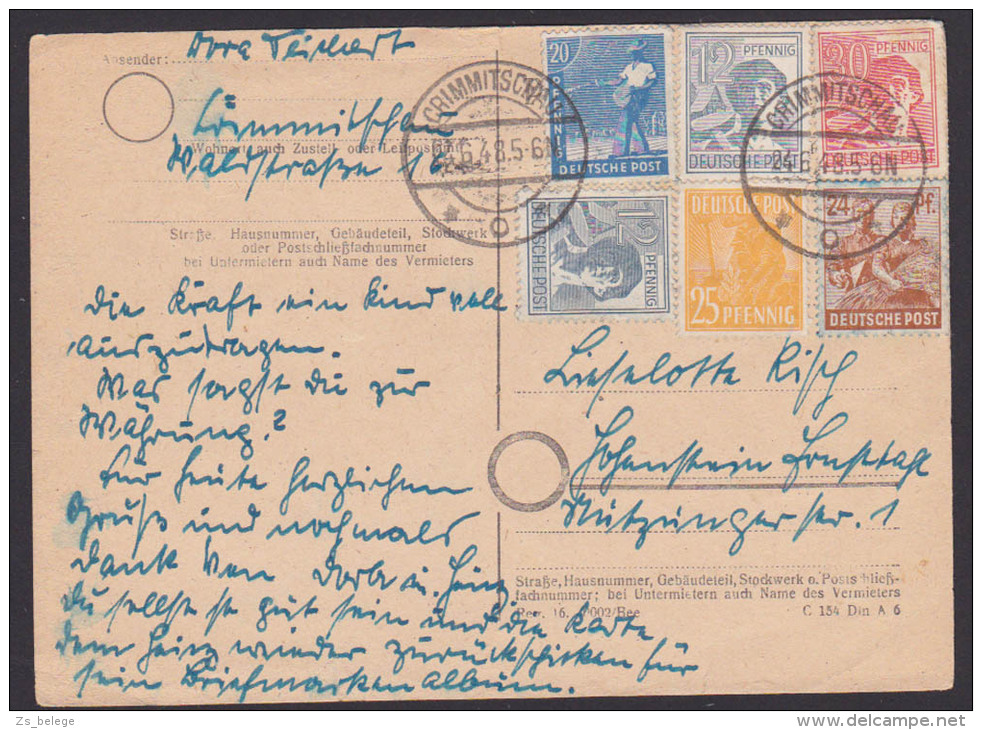 Dora Teichert
Absender:
Crimmitschau
Wohnort, auch Zustell- oder Leitpostamt
Waldstraße 16
Straße, Hausnummer, Gebäudeteil, Stockwerk
oder Postschließfachnummer
bei Untermietern auch Name des Vermieters
die Kraft ein Kind voll
auszutragen.
Was sagst du zur
Währung?
Für heute herzlichen
Gruß und nochmals
Dank von Dora u. Heinz
Du sollst so gut sein und die Karte
dem Heinz wieder zurückschicken für
sein Briefmarkenalbum.
20 PFENNIG
DEUTSCHE POST
12 PFENNIG
DEUTSCHE POST
30 PFENNIG
DEUTSCHE POST
12 PFENNIG
DEUTSCHE POST
DEUTSCHE POST
25 PFENNIG
24 Pf.
DEUTSCHE POST
CRIMMITSCHAU
24.6.48.5-6N
o
CRIMMITSCHAU
24.6.48.5-6N
o
Lieselotte Risch
Hohenstein Ernstthal
Straße, Hausnummer, Gebäudeteil, Stockwerk o. Postschließ-
fachnummer; bei Untermietern auch Name des Vermieters
C 154 Din A 6
Zs_belege
www.delcampe.net